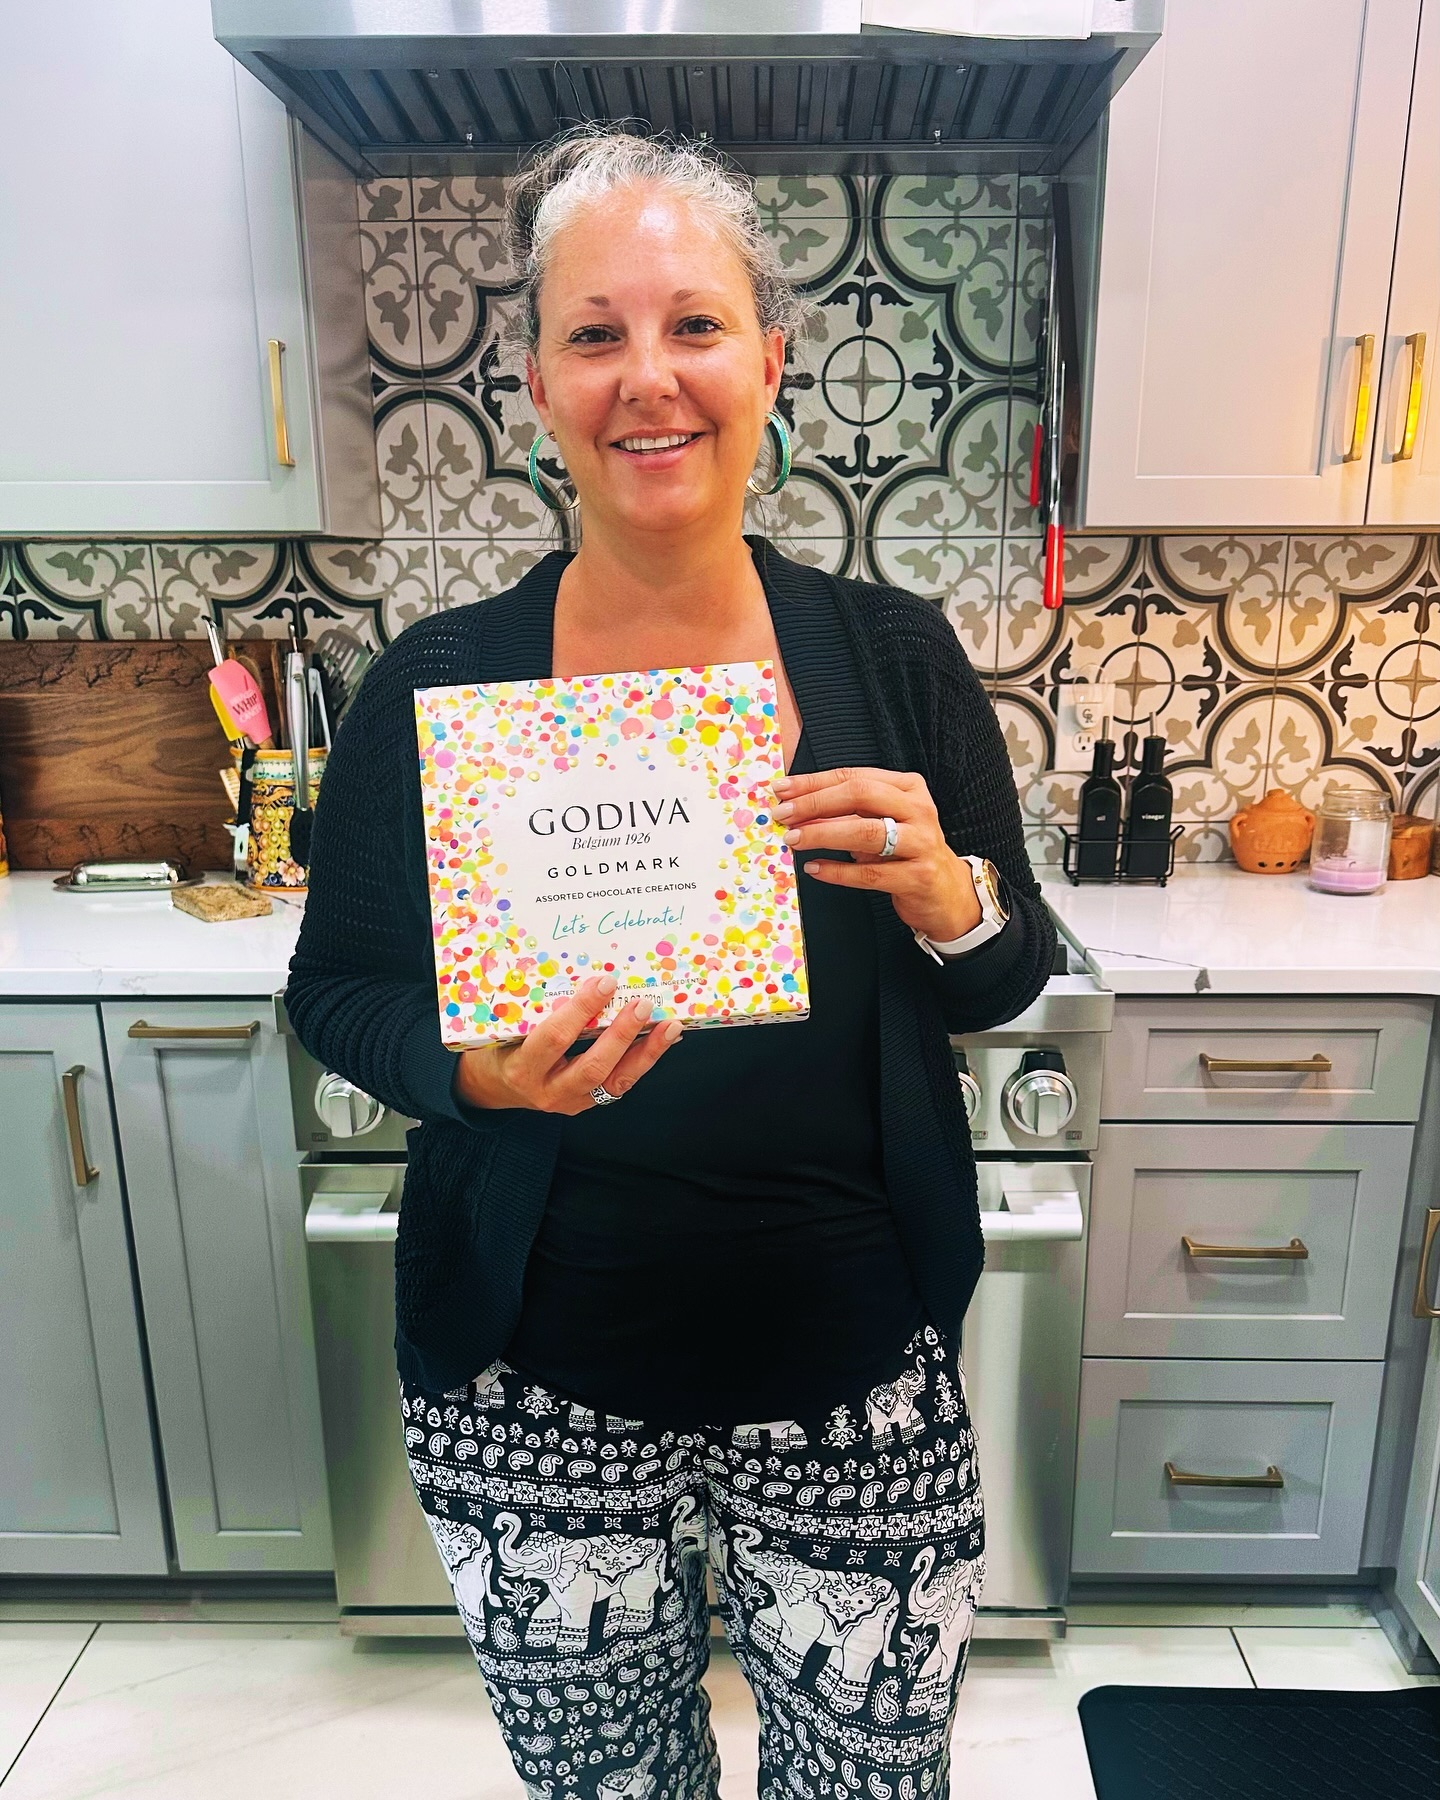 GODIVA
Belgium 1926
GOLDMARK
ASSORTED CHOCOLATE CREATIONS
Let's Celebrate!
CRAFTED
WITH GLOBAL INGREDIENTS
WT 7.8 OZ (221g)
WHIP
oil
vinegar